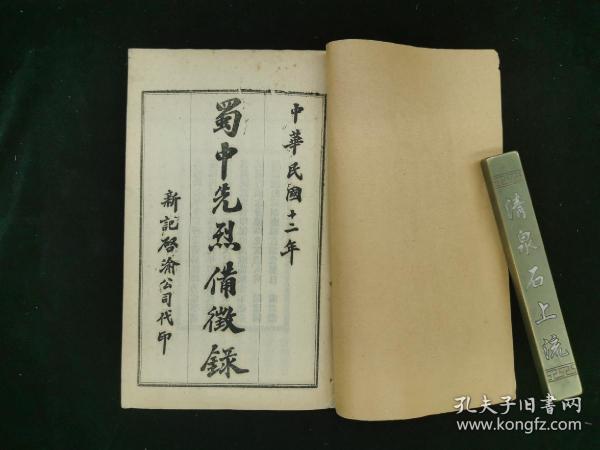 中華民國十二年
蜀中先烈備徵錄
新記啓渝公司代印
清泉石上流
孔夫子旧书网
www.kongfz.com